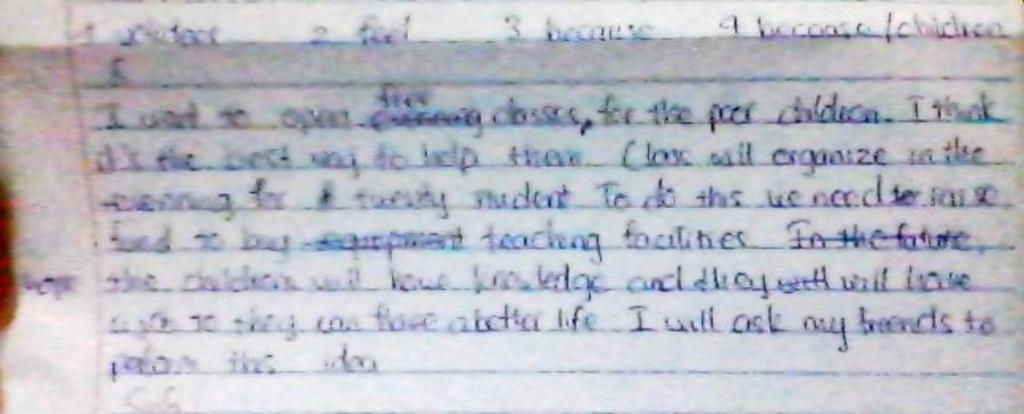 2 feel 3 because 4 because / children
E
I want to open free classes, for the poor children. I think
it's the best way to help them. Class will organize in the
evening for twenty student To do this we need to raise
fund to buy equipment teaching facilities In the future,
the children will have knowledge and they will have
so they can have a better life I will ask my friends to
perform this idea